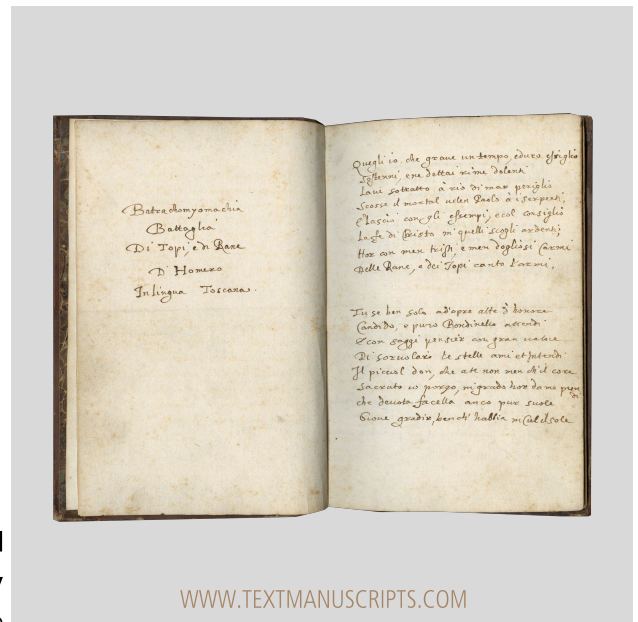 Batrachomyomachia
Battaglia
Di Topi, e di Rane
D' Homero
In lingua Toscana.
Quegli io, che grave un tempo, e duro essiglio
Sostenni, e ne dettai rime dolenti
La ve sottratto à rio di mar periglio
Scosse il mortal velen Paolo à i serpenti,
E lasciò con gli essempi, e col consiglio
La fe di Cristo in quelli scogli ardenti;
Hor con men tristi, e men dogliosi Carmi
Delle Rane, e dei Topi canto l'armi.
Tu se ben sola ad opre alte d' honore
Candido, e puro Rondinella attendi
E con saggi pensier con gran valore
Di sorvolare le stelle ami et intendi
Il picciol don, che a te non men ch' il core
Sacrato io porgo, in grado hor da me prendi
che devota facella anco pur suole
Giove gradir, bench' habbia in Ciel il sole
WWW.TEXTMANUSCRIPTS.COM